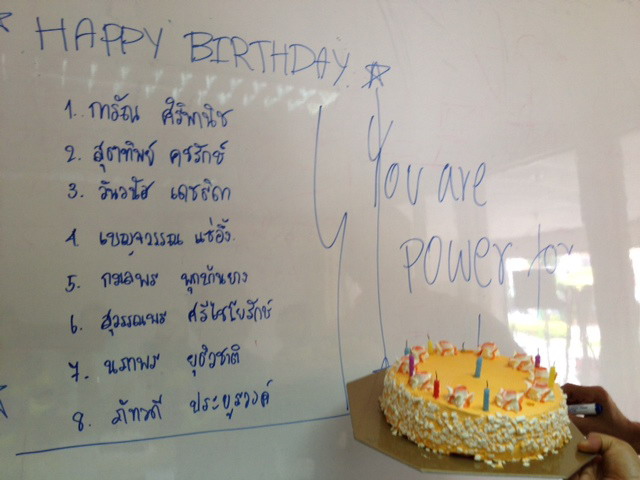 HAPPY BIRTHDAY
1. การัณ ศิริพานิช
2. สุธาทิพย์ คชรักษ์
3. วันวนัช เดชธิดา
4. เบญจวรรณ แซ่อึ้ง
5. กมลพร
6. สุวรรณพร ศรีไชยรักษ์
7. นราพร ยุติวชาติ
8. ภัทรวดี ประยูรวงค์
You are
power for